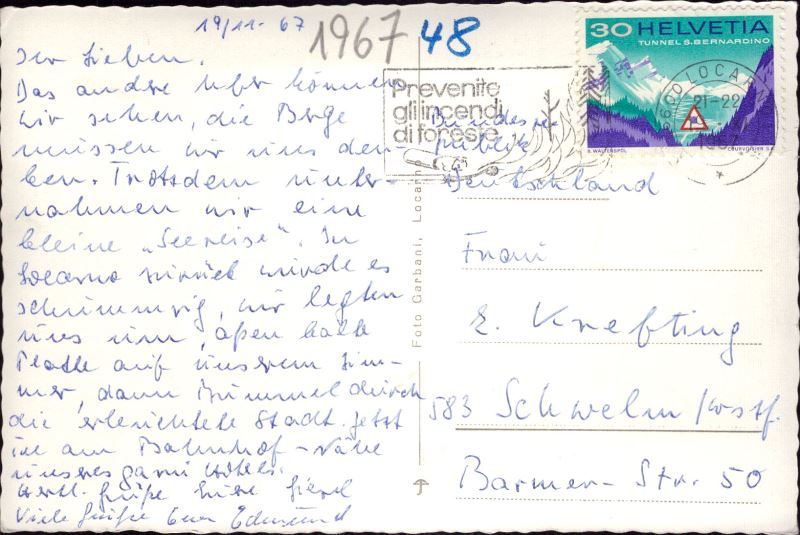 19/11. 67
1967 48
Ihr Lieben.
Das andre Ufer können
wir sehen, die Berge
müssen wir uns den-
ken. Trotzdem unter-
nahmen wir eine
kleine „Seereise“. In
Locarno zurück wurde es
schummrig, wir legten
uns um, aßen kalte
Platte auf unserem Zim-
mer, dann Bummel durch
die erleuchtete Stadt. Jetzt
in am Bahnhof - Nähe
unseres garni Hotels.
Herzl. Grüße Eure
Viele Grüße Euer Edmund
Foto Garbani, Locarno
Prevenite
gli incendi
di foreste
30 HELVETIA
TUNNEL S. BERNARDINO
6600 LOCAR
21-22
H. WALTENSPÜL
COURVOISIER S.A.
Bundesre-
publik
Deutschland
Frau
E. Knefting
583 Schwelm/Westf.
Barmer-Str. 50